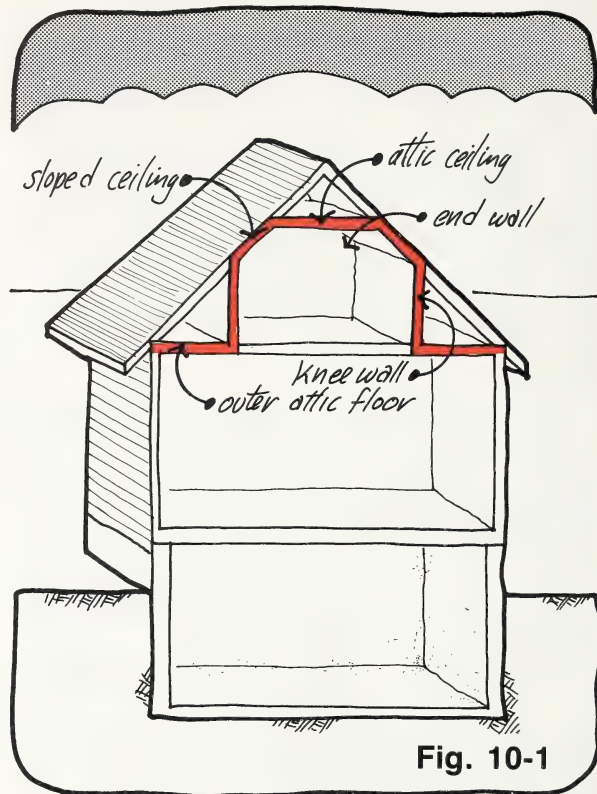 sloped ceiling
attic ceiling
end wall
Knee wall
outer attic floor
Fig. 10-1